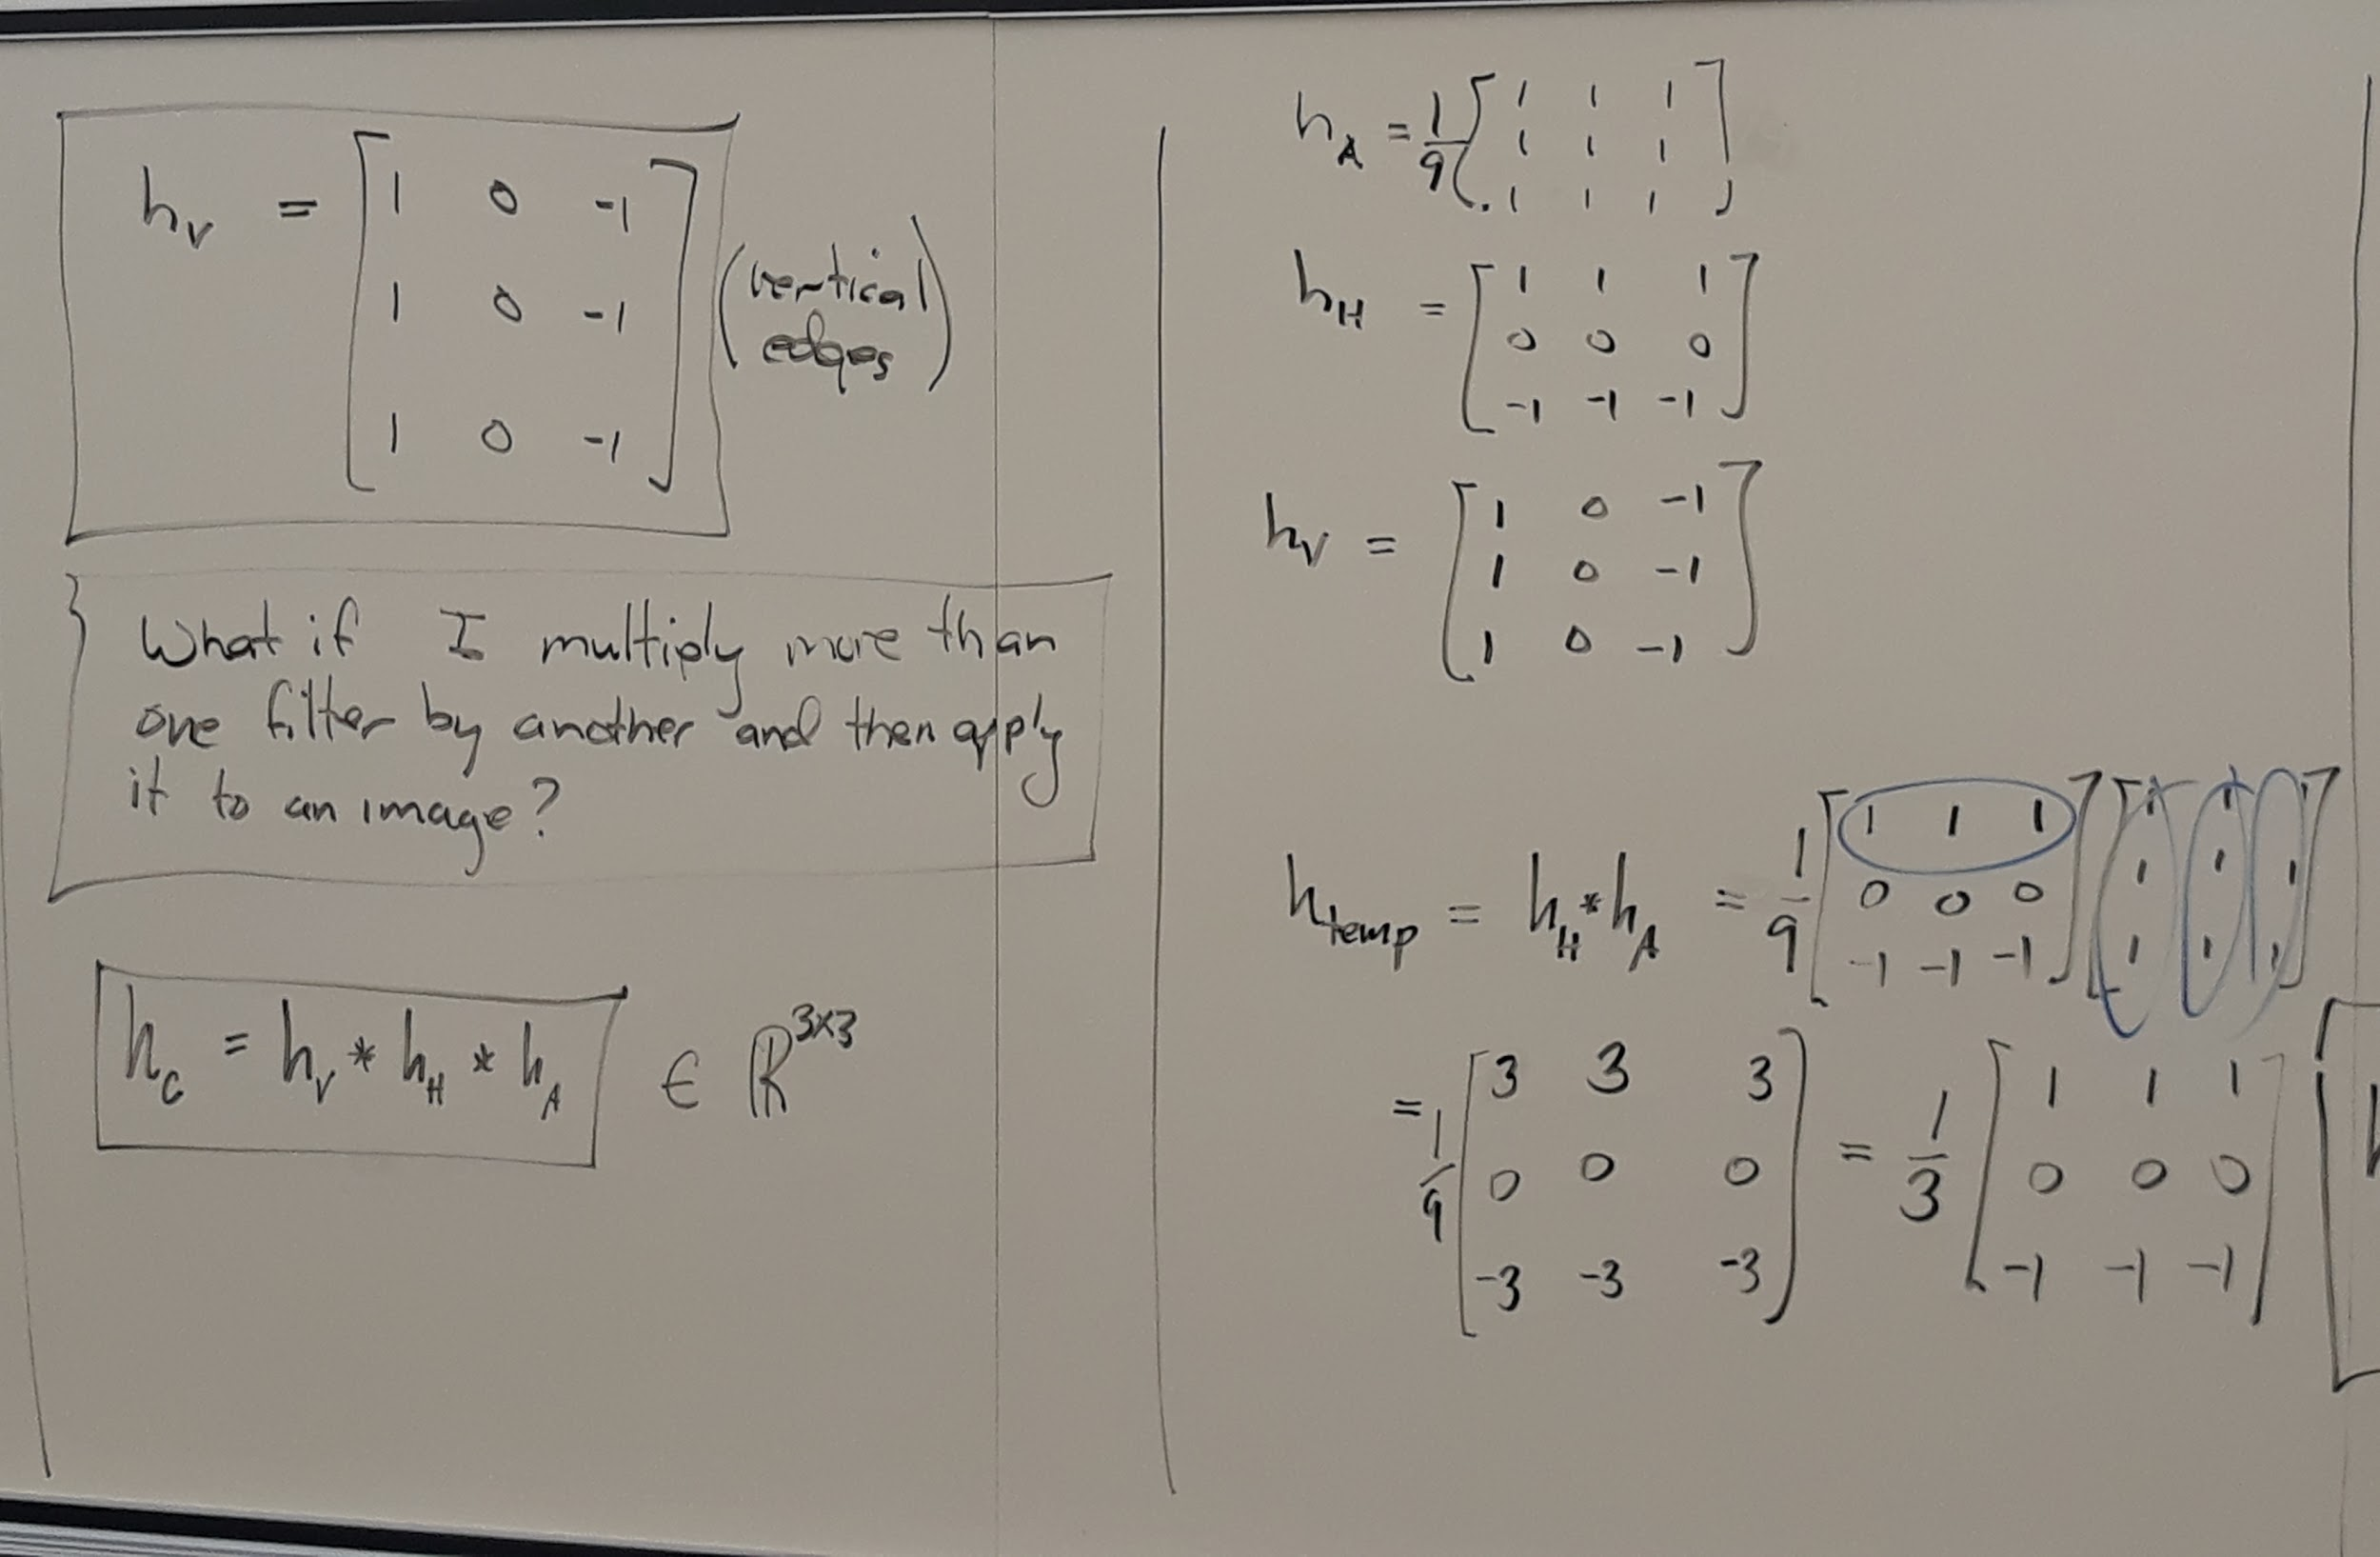 h_V = [1 0 -1
1 0 -1
1 0 -1] (vertical
edges)
What if I multiply more than
one filter by another and then apply
it to an image?
h_C = h_V * h_H * h_A ∈ ℝ^3×3
h_A = 1/9 [1 1 1
1 1 1
1 1 1]
h_H = [1 1 1
0 0 0
-1 -1 -1]
h_V = [1 0 -1
1 0 -1
1 0 -1]
h_temp = h_H * h_A = 1/9 [1 1 1
0 0 0
-1 -1 -1] [1 1 1
1 1 1
1 1 1]
= 1/9 [3 3 3
0 0 0
-3 -3 -3] = 1/3 [1 1 1
0 0 0
-1 -1 -1]